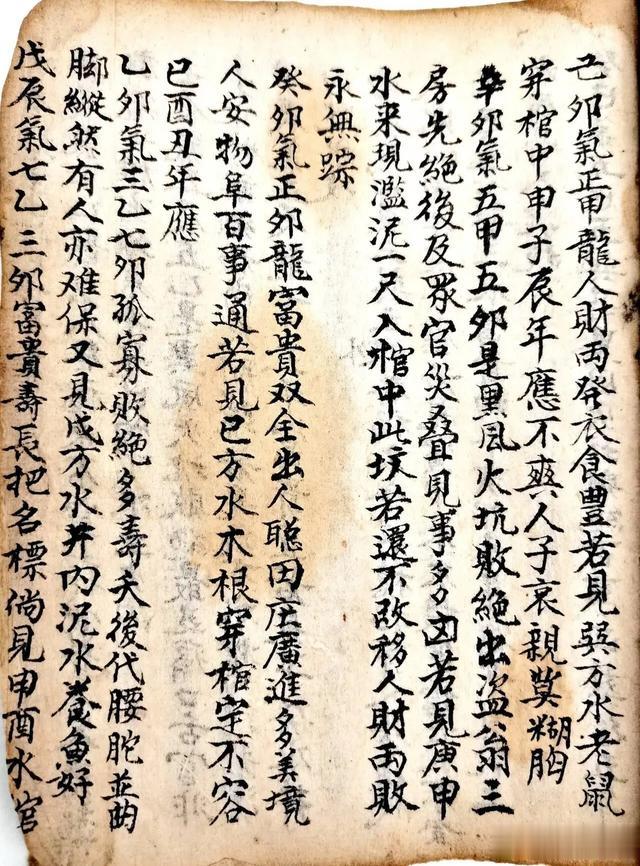 己卯氣正甲龍人財両發衣食豊若見巽方水老鼠
穿棺中申子辰年應不爽人子哀親莫糊胸
辛卯氣五甲五卯是黑風火坑敗絕出盗翁三
房先絕後及眾官災叠見事多凶若見庚申
水来現濫泥一尺入棺中此坟若還不改移人財両敗
永無踪
癸卯氣正卯龍富貴双全出人聰田庄廣進多美境
人安物阜百事通若見巳方水木根穿棺定不容
巳酉丑年應
乙卯氣三乙七卯孤寡敗絕多壽夭後代腰駝並
脚縱然有人亦难保又見戊方水井内泥水養魚好
戊辰氣七乙三卯富貴壽長把名標倘見申酉水官